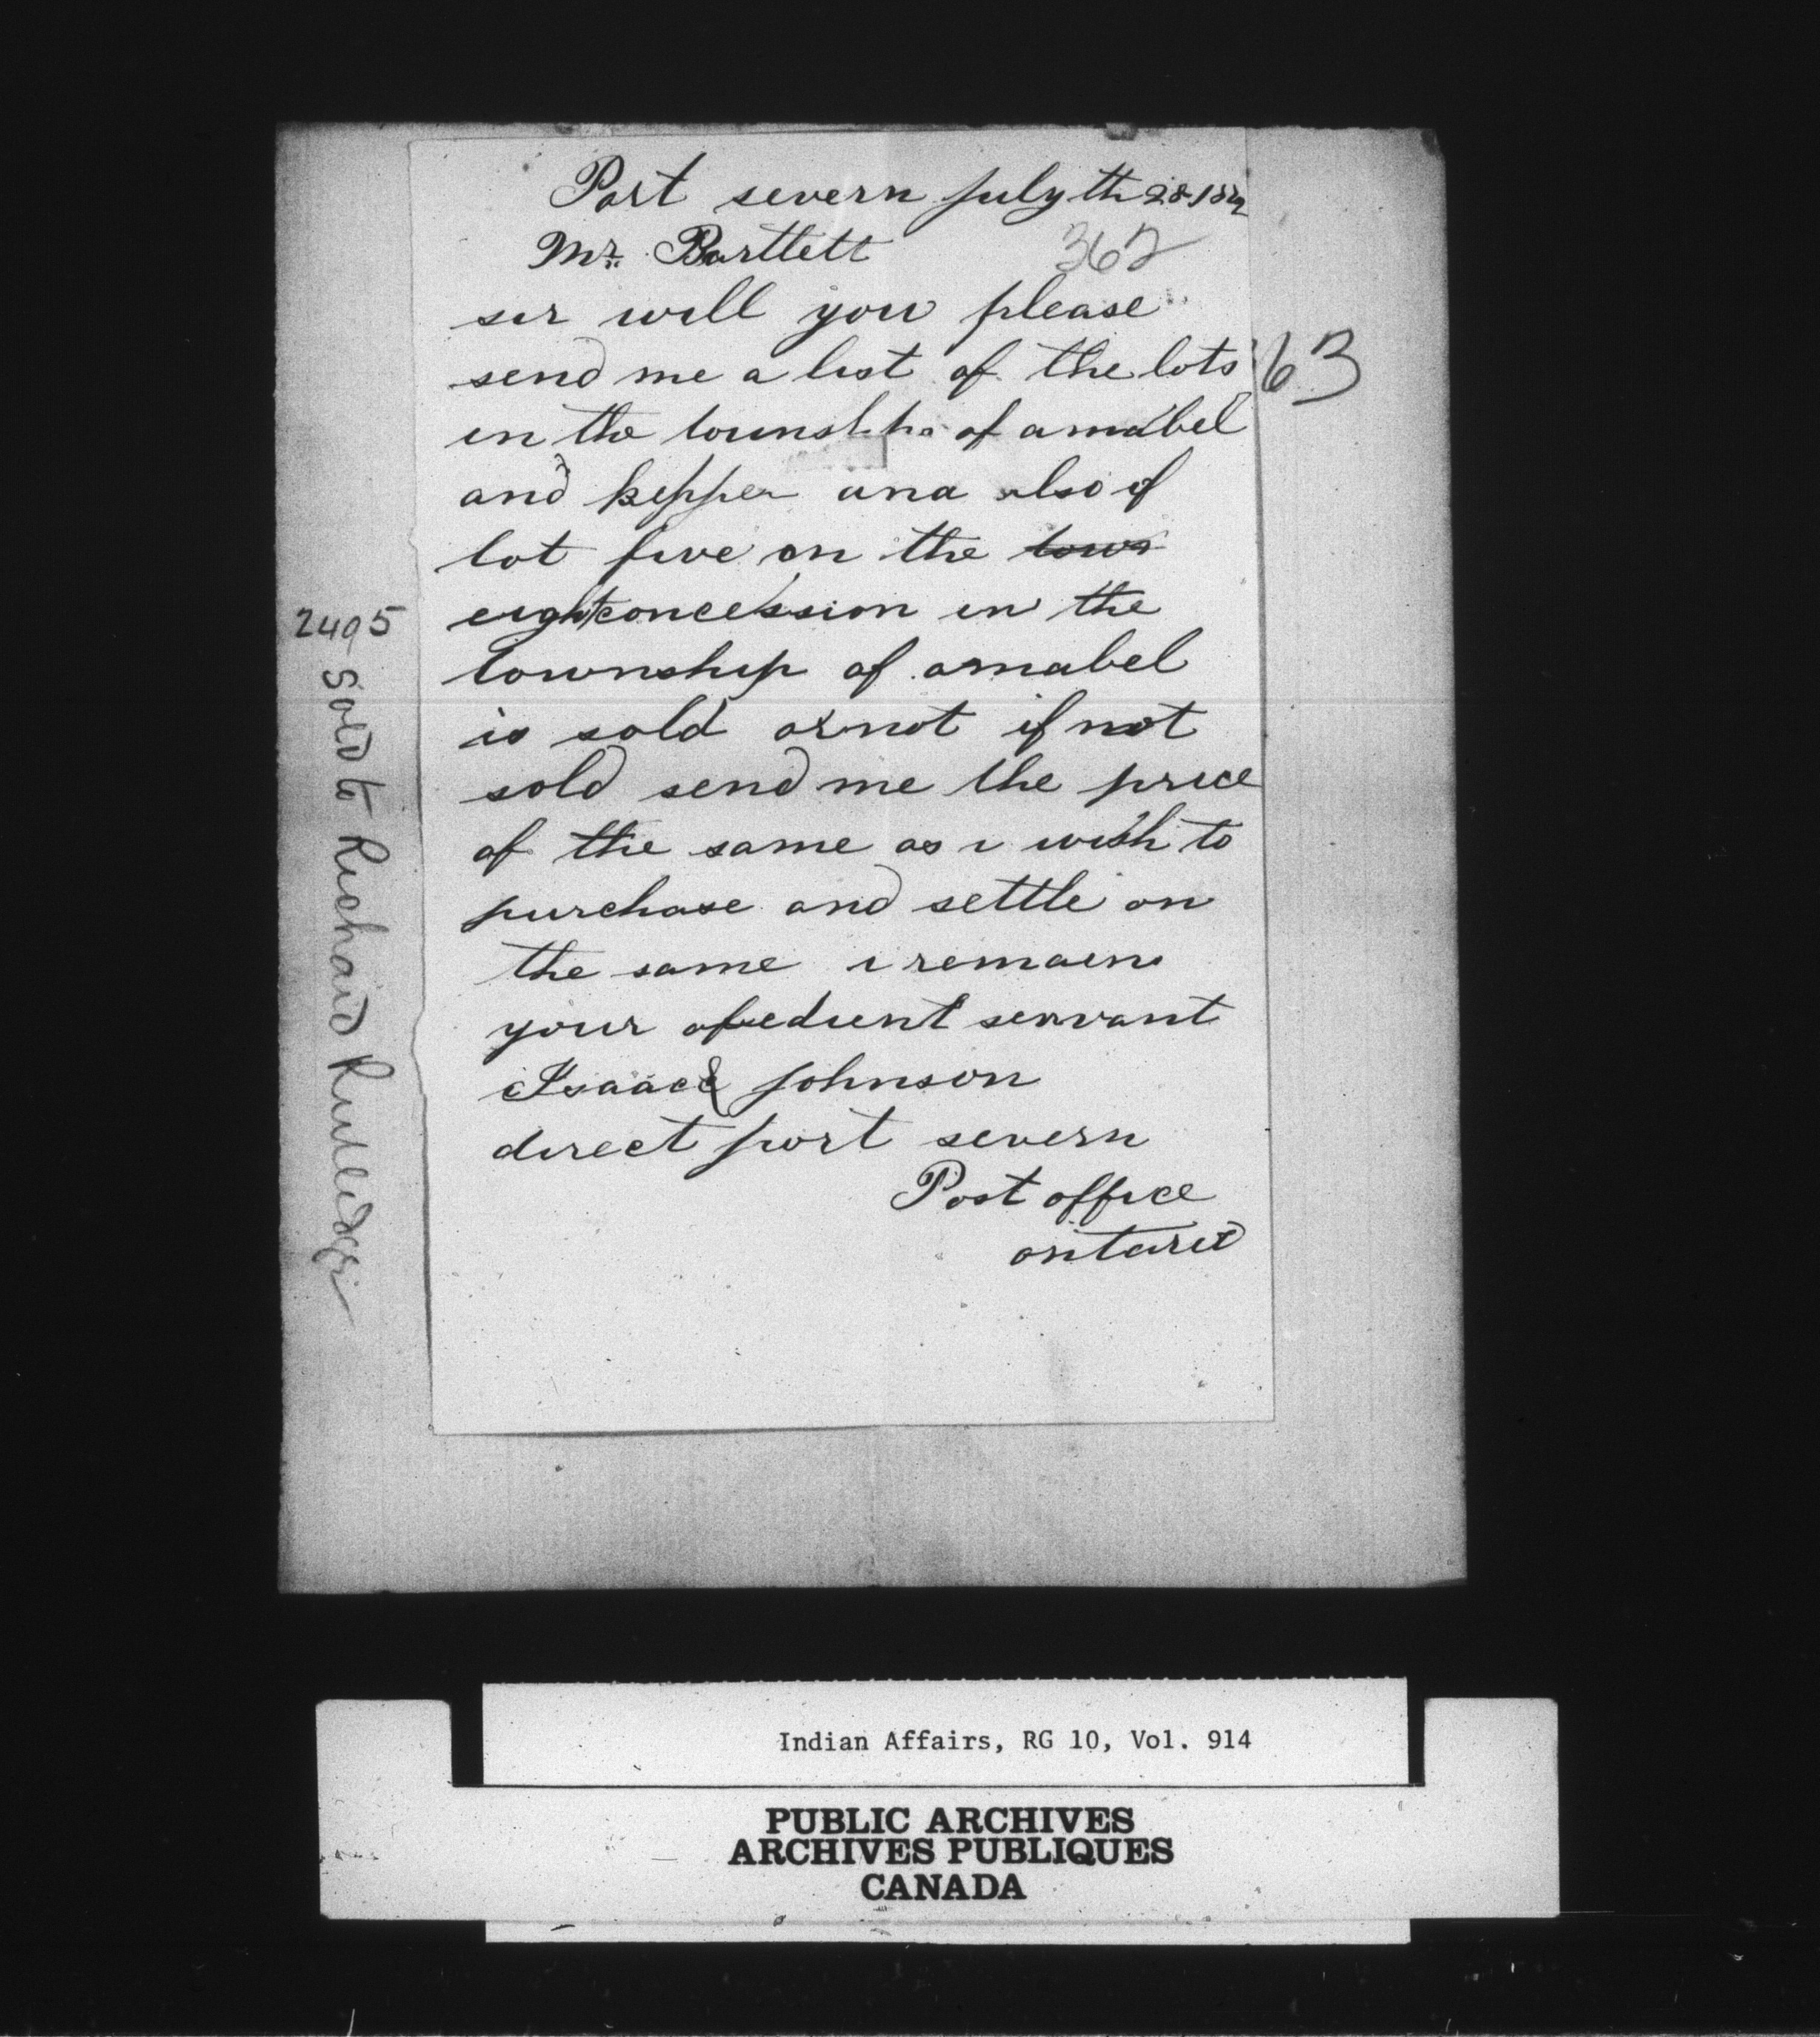 Port severn july th 28
Mr. Bartlett 362
sir will you please
send me a list of the lots
63
in the townships of amabel
and keppel and also if
lot five on the tows
eight concession in the
township of amabel
is sold or not if not
sold send me the price
of the same as i wish to
purchase and settle on
the same i remain
your obedient servant
Isaac Johnson
direct port severn
Post office
ontario
2495
Sold to Richard Rutledge
Indian Affairs, RG 10, Vol. 914
PUBLIC ARCHIVES
ARCHIVES PUBLIQUES
CANADA